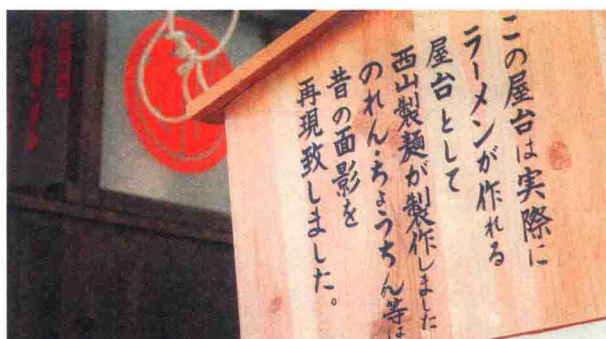 この屋台は実際に
ラーメンが作れる
屋台として
西山製麺が製作しました
のれん・ちょうちん等は
昔の面影を
再現致しました。